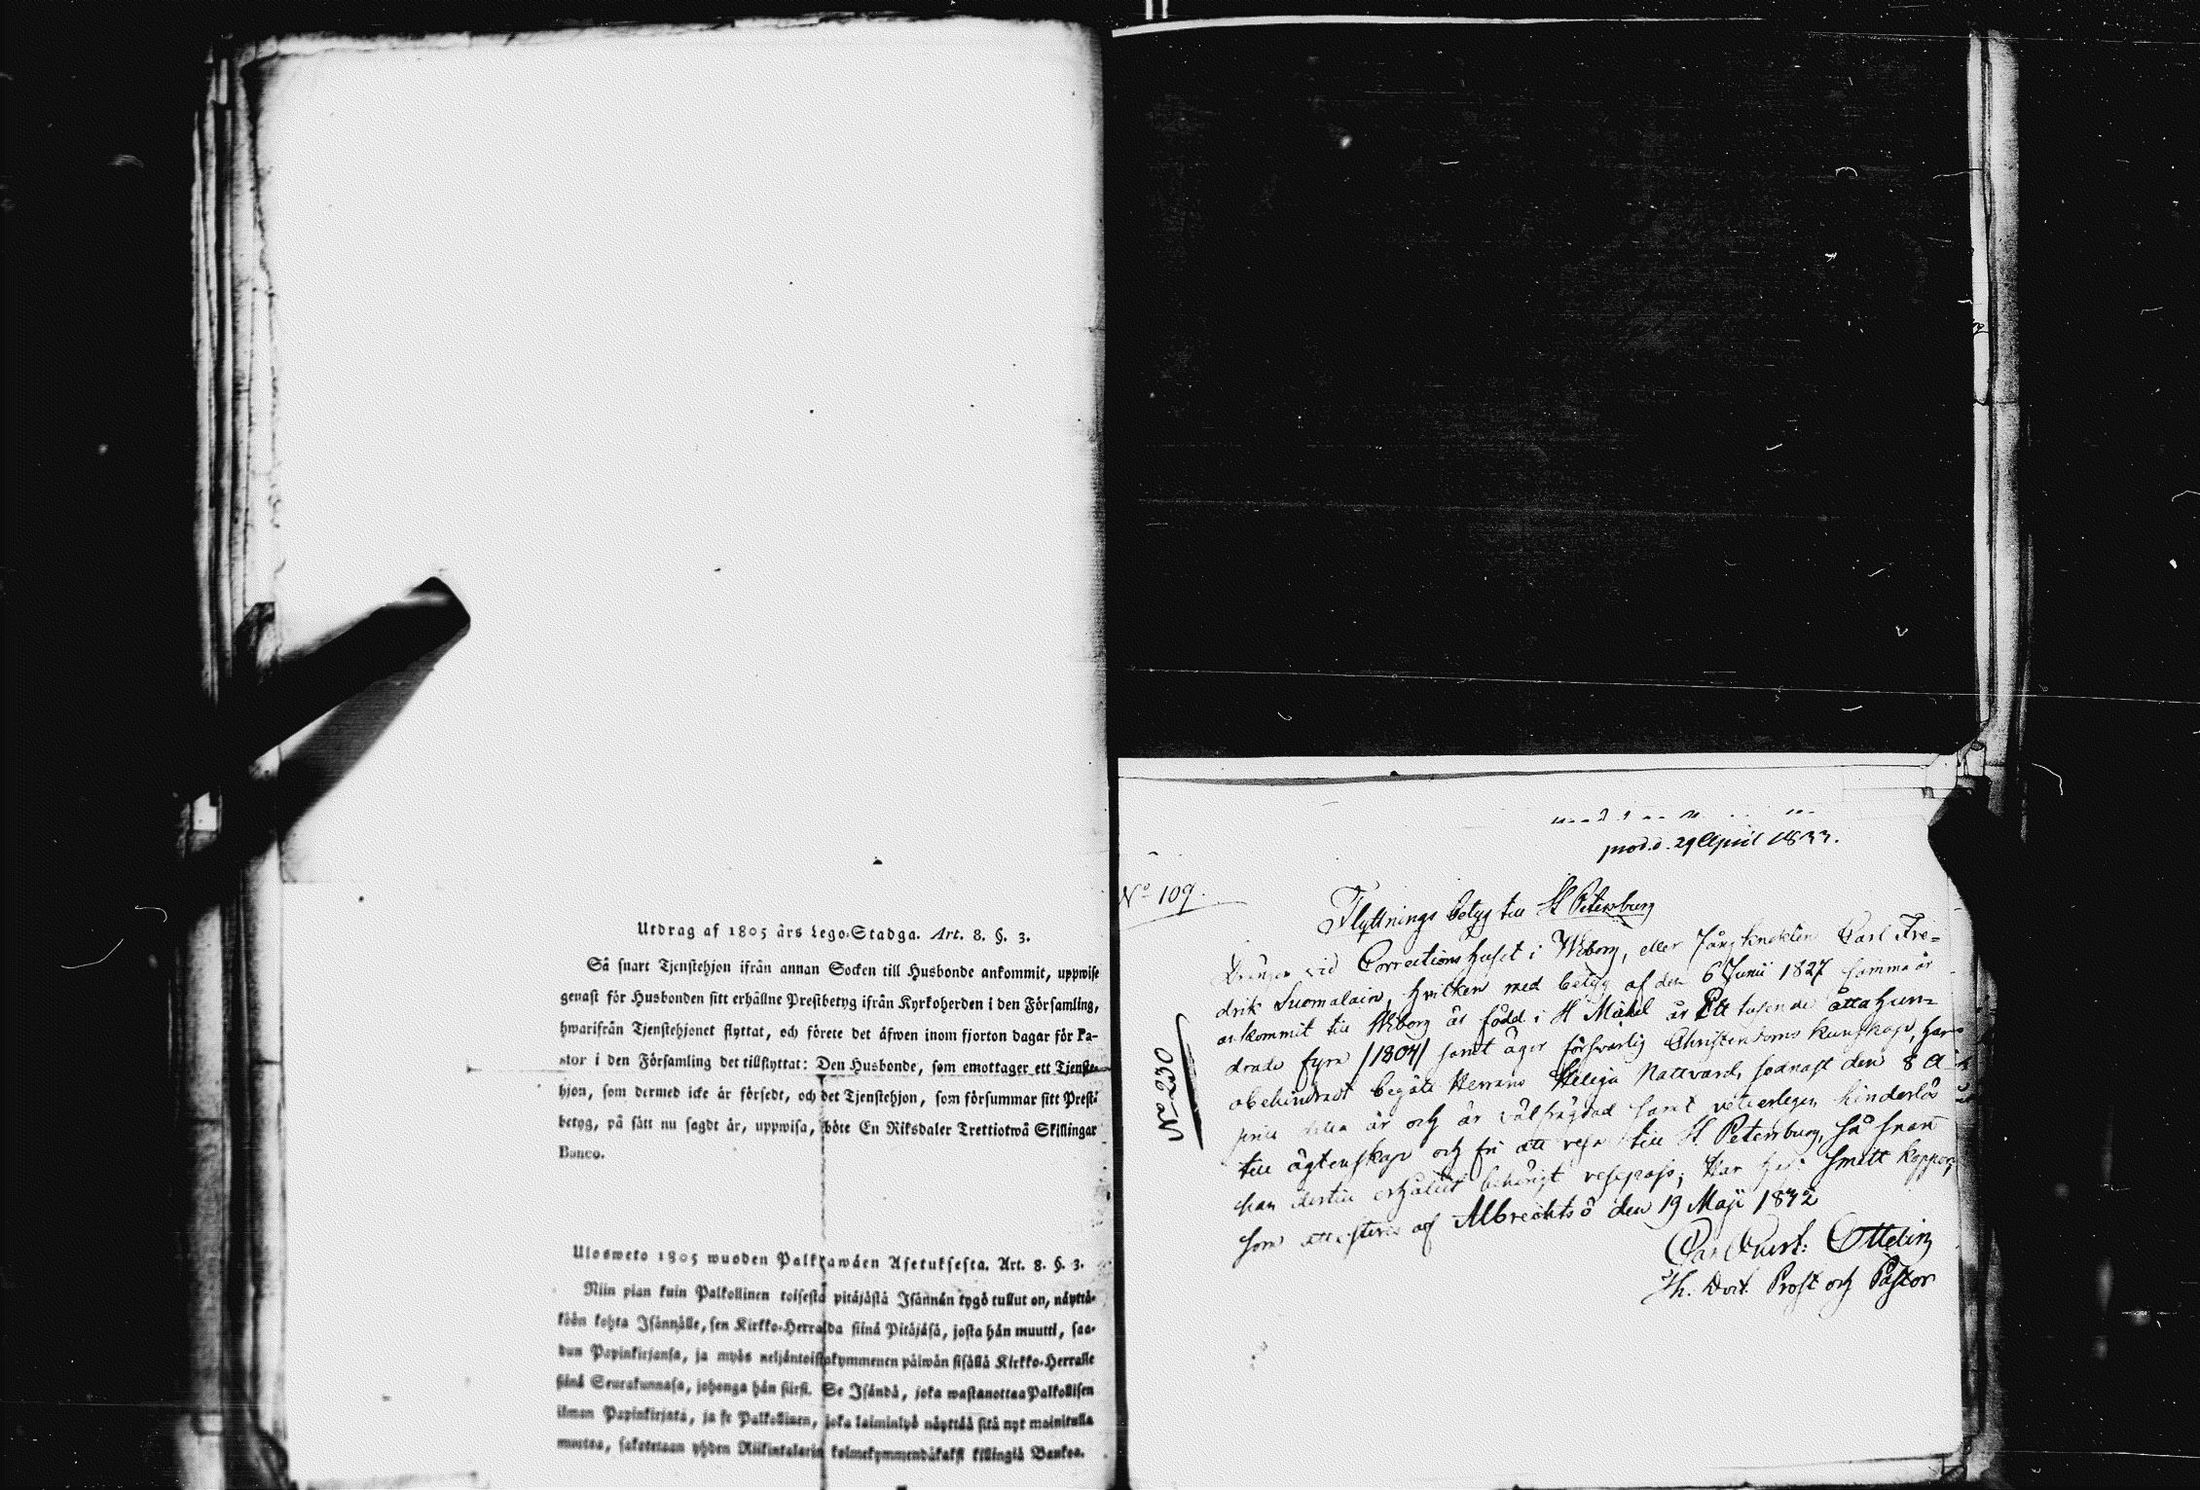 Utdrag af 1805 års Lego-Stadga. Art. 8. §. 3.
Så snart Tjenstehjon ifrån annan Socken till Husbonde ankommit, uppwise
genast för Husbonden sitt erhållne Prestbetyg ifrån Kyrkoherden i den Församling,
hwarifrån Tjenstehjonet flyttat, och förete det äfwen inom fjorton dagar för Pa-
stor i den Församling det tillflyttat: Den Husbonde, som emottager ett Tjenste-
hjon, som dermed icke är försedt, och det Tjenstehjon, som försummar sitt Prest-
betyg, på sätt nu sagdt är, uppwisa, böte En Riksdaler Trettiotwå Skillingar
Banco.
Ulosweto 1805 wuoden Palkkawäen Asetuksesta. Art. 8. §. 3.
Niin pian kuin Palkollinen toisesta pitäjästä Isännän tygö tullut on, näyttä-
köön kohta Isännälle, sen Kirkko-Herralda siinä Pitäjäsä, josta hän muutti, saa-
dun Papinkirjansa, ja myös neljäntoistakymmenen päiwän sisällä Kirkko-Herralle
siinä Seurakunnasa, johonga hän siirsi. Se Isändä, joka wastanottaa Palkollisen
ilman Papinkirjata, ja se Palkollinen, joka laiminlyö näyttää sitä nyt mainitulla
muotoa, sakotetaan yhden Riikintalarin kolmekymmendäkaksi killingiä Bankoa.
prod. d. 29 April 1833.
No 109.
Flyttnings betyg till St Petersburg
Drängen vid Corrections huset i Wiborg, eller Fångknekten Carl Fre-
drik Suomalain, hvilken med betyg af den 6 Junii 1827 samma år
ankommit till Wiborg är född i St Michel år Ett tusende åttahun-
drade fyra /1804/ samt äger försvarlig Christendoms kunskap, har
obehindradt begått Herrans Heliga Nattvard, sednast den 8 A
prill detta år och är välfrägdad samt veterlegen hinderlös
till ägtenskap och fri att resa till St Petersburg, så snart
han dertill erhållit behörigt resepass; Har haft Smitt koppor,
som attesteras af Albrechtsö den 19 Maji 1832
No 230
Carl Gust: Ottelin
Th. Doct. Prost och Pastor